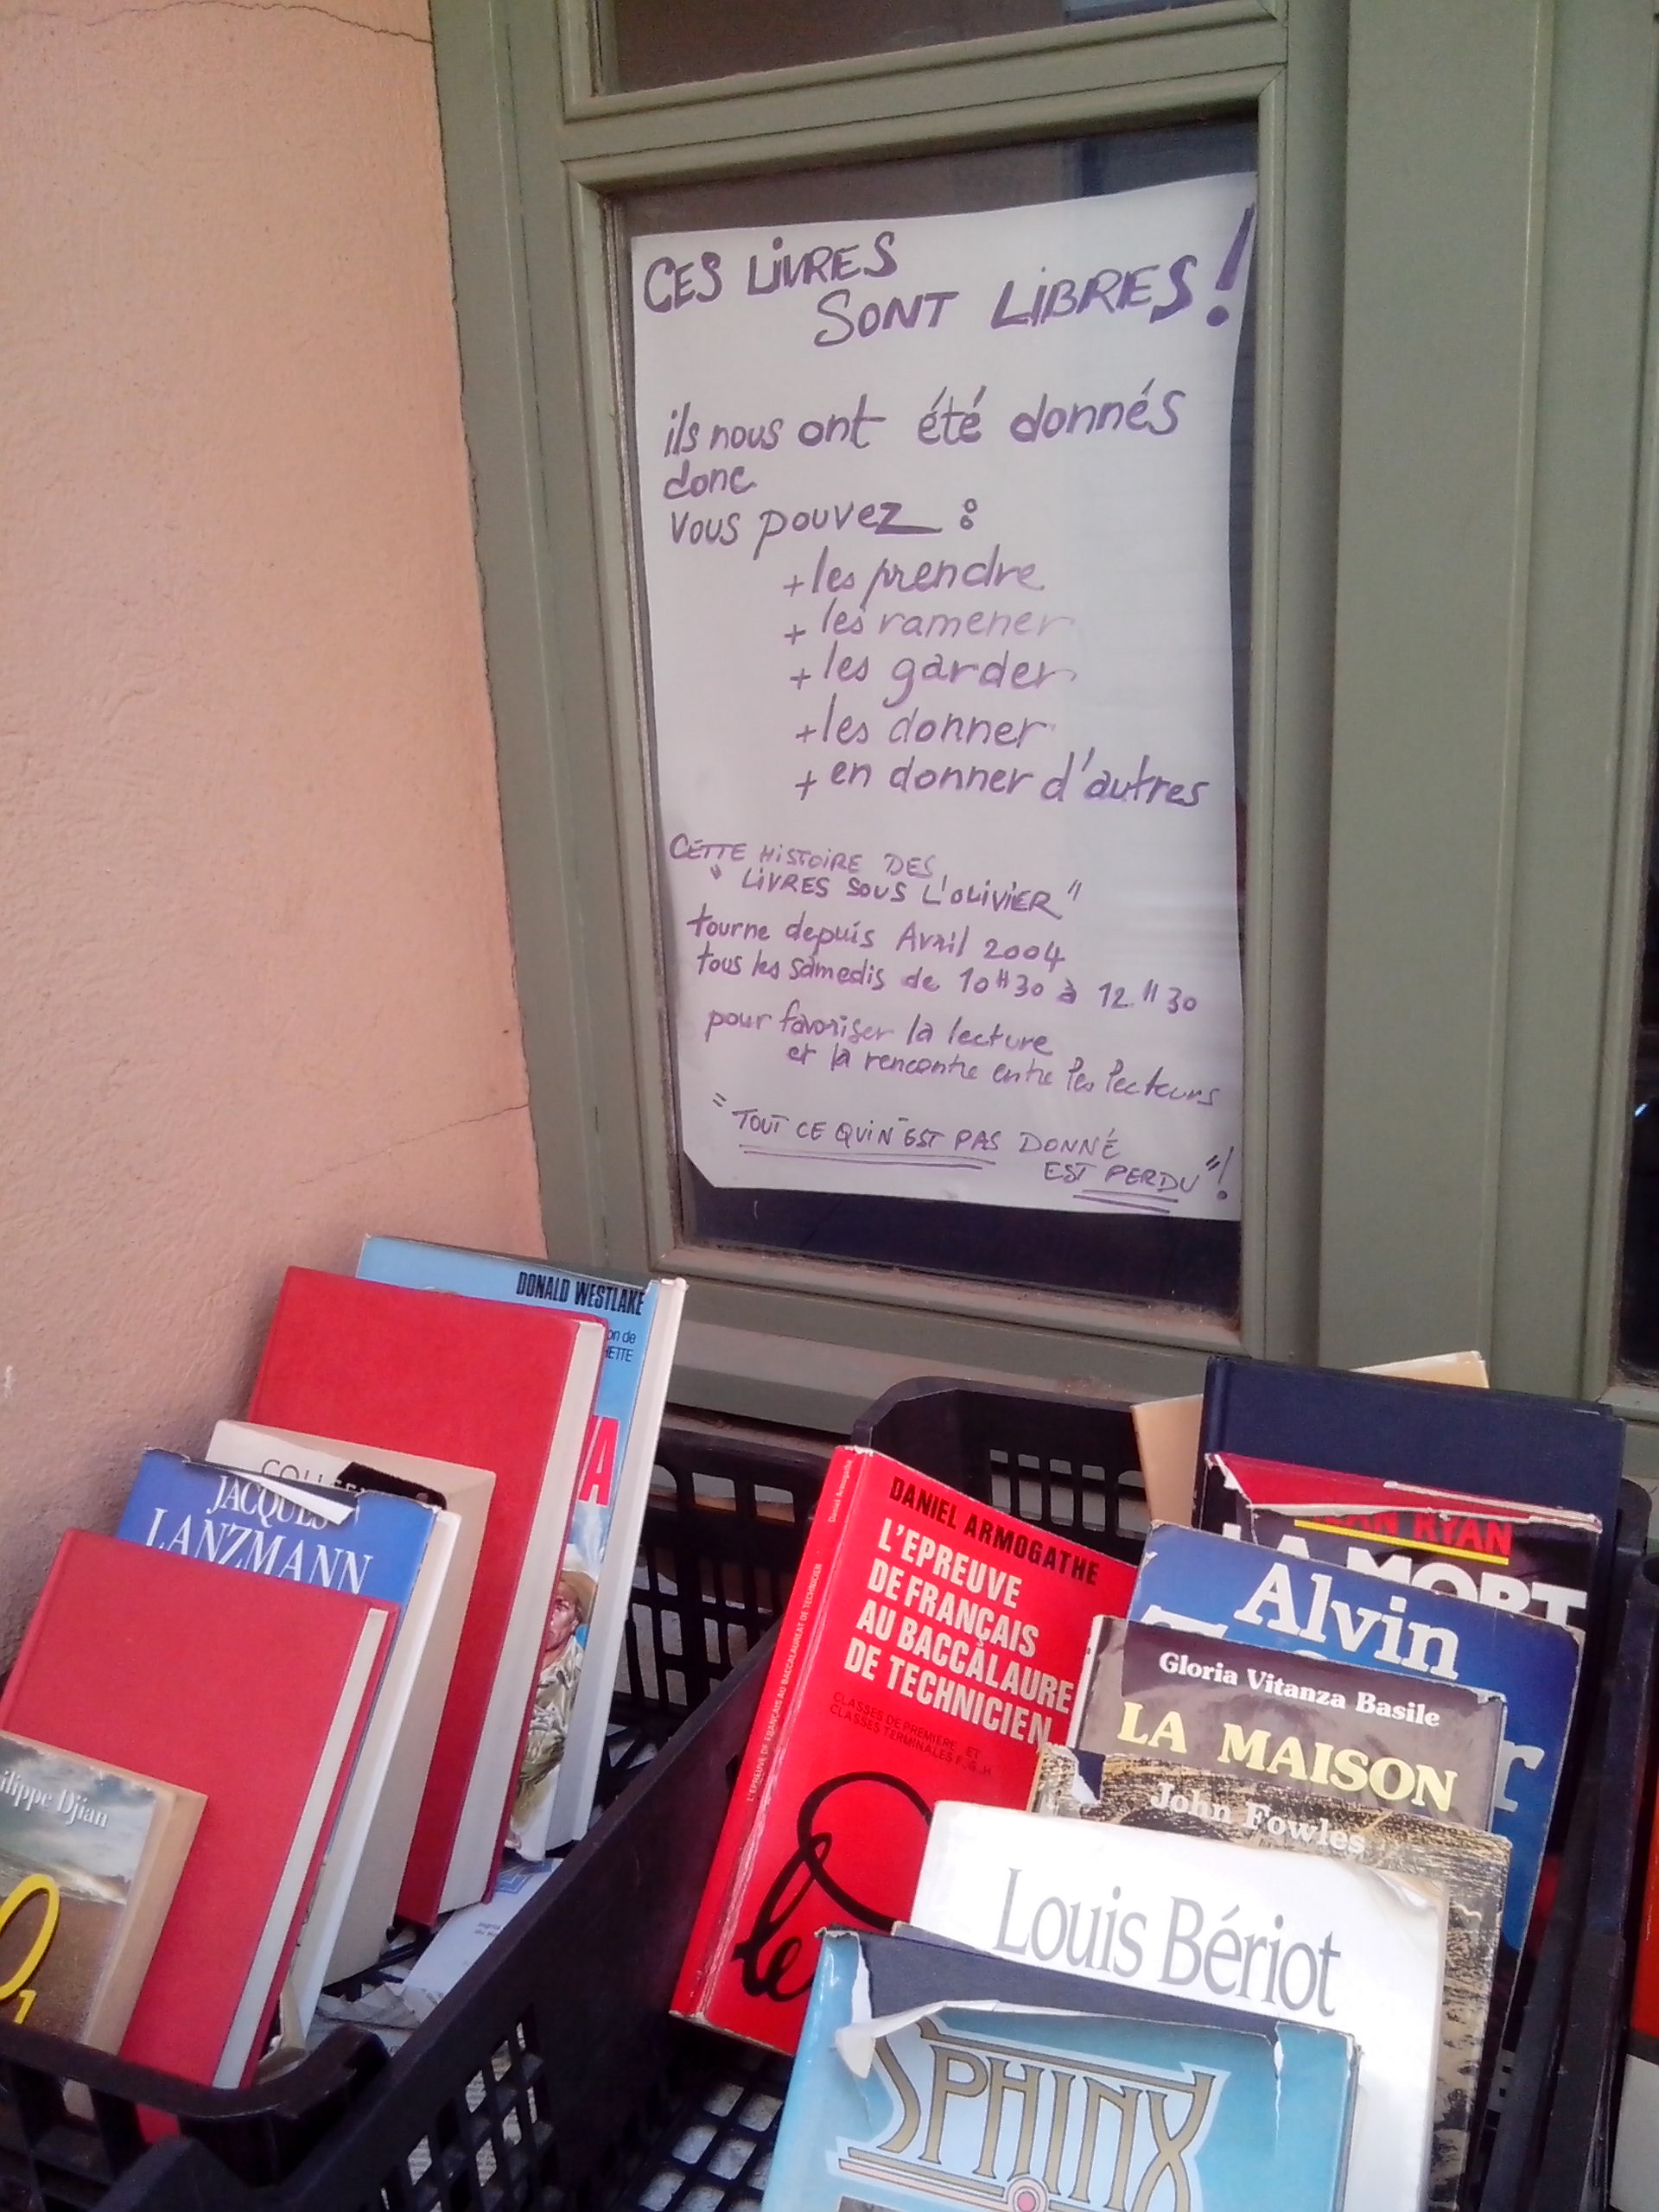 CES LIVRES
SONT LIBRES !
ils nous ont été donnés
donc
vous pouvez :
+ les prendre
+ les ramener
+ les garder
+ les donner
+ en donner d'autres
CETTE HISTOIRE DES
" LIVRES SOUS L'OLIVIER "
tourne depuis Avril 2004
tous les samedis de 10H30 à 12H30
pour favoriser la lecture
et la rencontre entre les lecteurs
" TOUT CE QUI N'EST PAS DONNÉ
EST PERDU " !
DONALD WESTLAKE
on de
HETTE
A
COLLE
JACQUES
LANZMANN
ilippe Djian
1
Daniel Armogathe
L'EPREUVE DE FRANÇAIS AU BACCALAUREAT DE TECHNICIEN
DANIEL ARMOGATHE
L'EPREUVE
DE FRANÇAIS
AU BACCALAURE
DE TECHNICIEN
CLASSES DE PREMIERE ET
CLASSES TERMINALES F_G_H
RYAN
LA MORT
Alvin
r
Gloria Vitanza Basile
LA MAISON
John Fowles
Louis Bériot
SPHINX